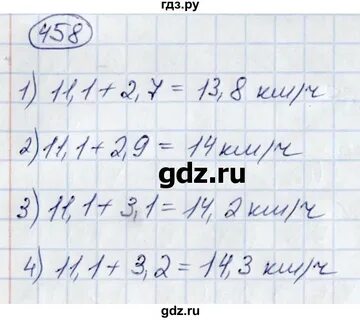 гдз.ру
458
1) 11,1 + 2,7 = 13,8 км/ч
2) 11,1 + 2,9 = 14 км/ч
gdz.ru
3) 11,1 + 3,1 = 14,2 км/ч
4) 11,1 + 3,2 = 14,3 км/ч
gdz.ru